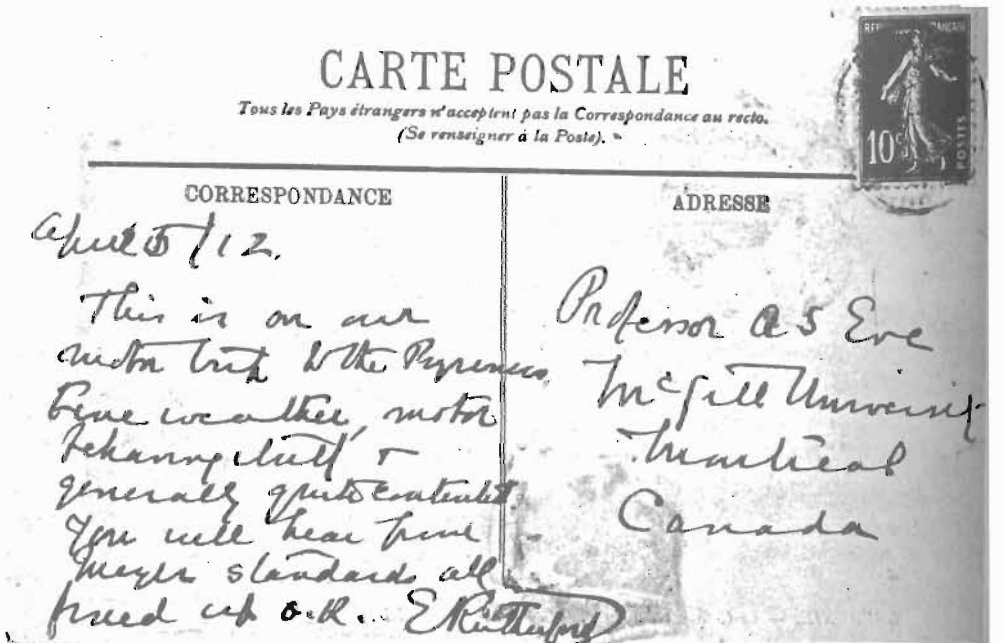 CARTE POSTALE
Tous les Pays étrangers n'acceptent pas la Correspondance au recto.
(Se renseigner à la Poste).
RÉPUBLIQUE FRANÇAISE
10c
POSTES
CORRESPONDANCE
April 5/12.
This is on our
motor trip to the Pyrenees.
Fine weather, motor
behaving itself &
generally quite contented
You will hear from
Meyer standards all
fixed up o.k. E Rutherford
ADRESSE
Professor A S Eve
McGill University
Montreal
Canada